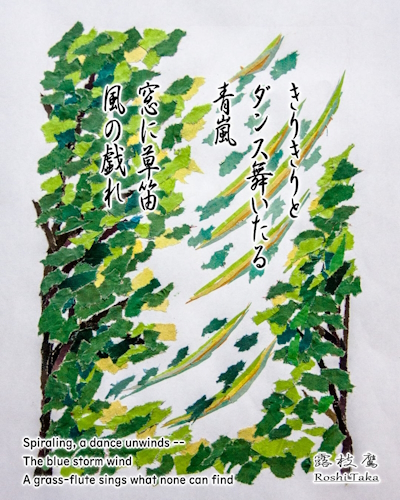 きりきりと
ダンス舞いたる
青嵐
窓に草笛
風の戯れ
Spiraling, a dance unwinds --
The blue storm wind
A grass-flute sings what none can find
露枝鷹
Roshi Taka